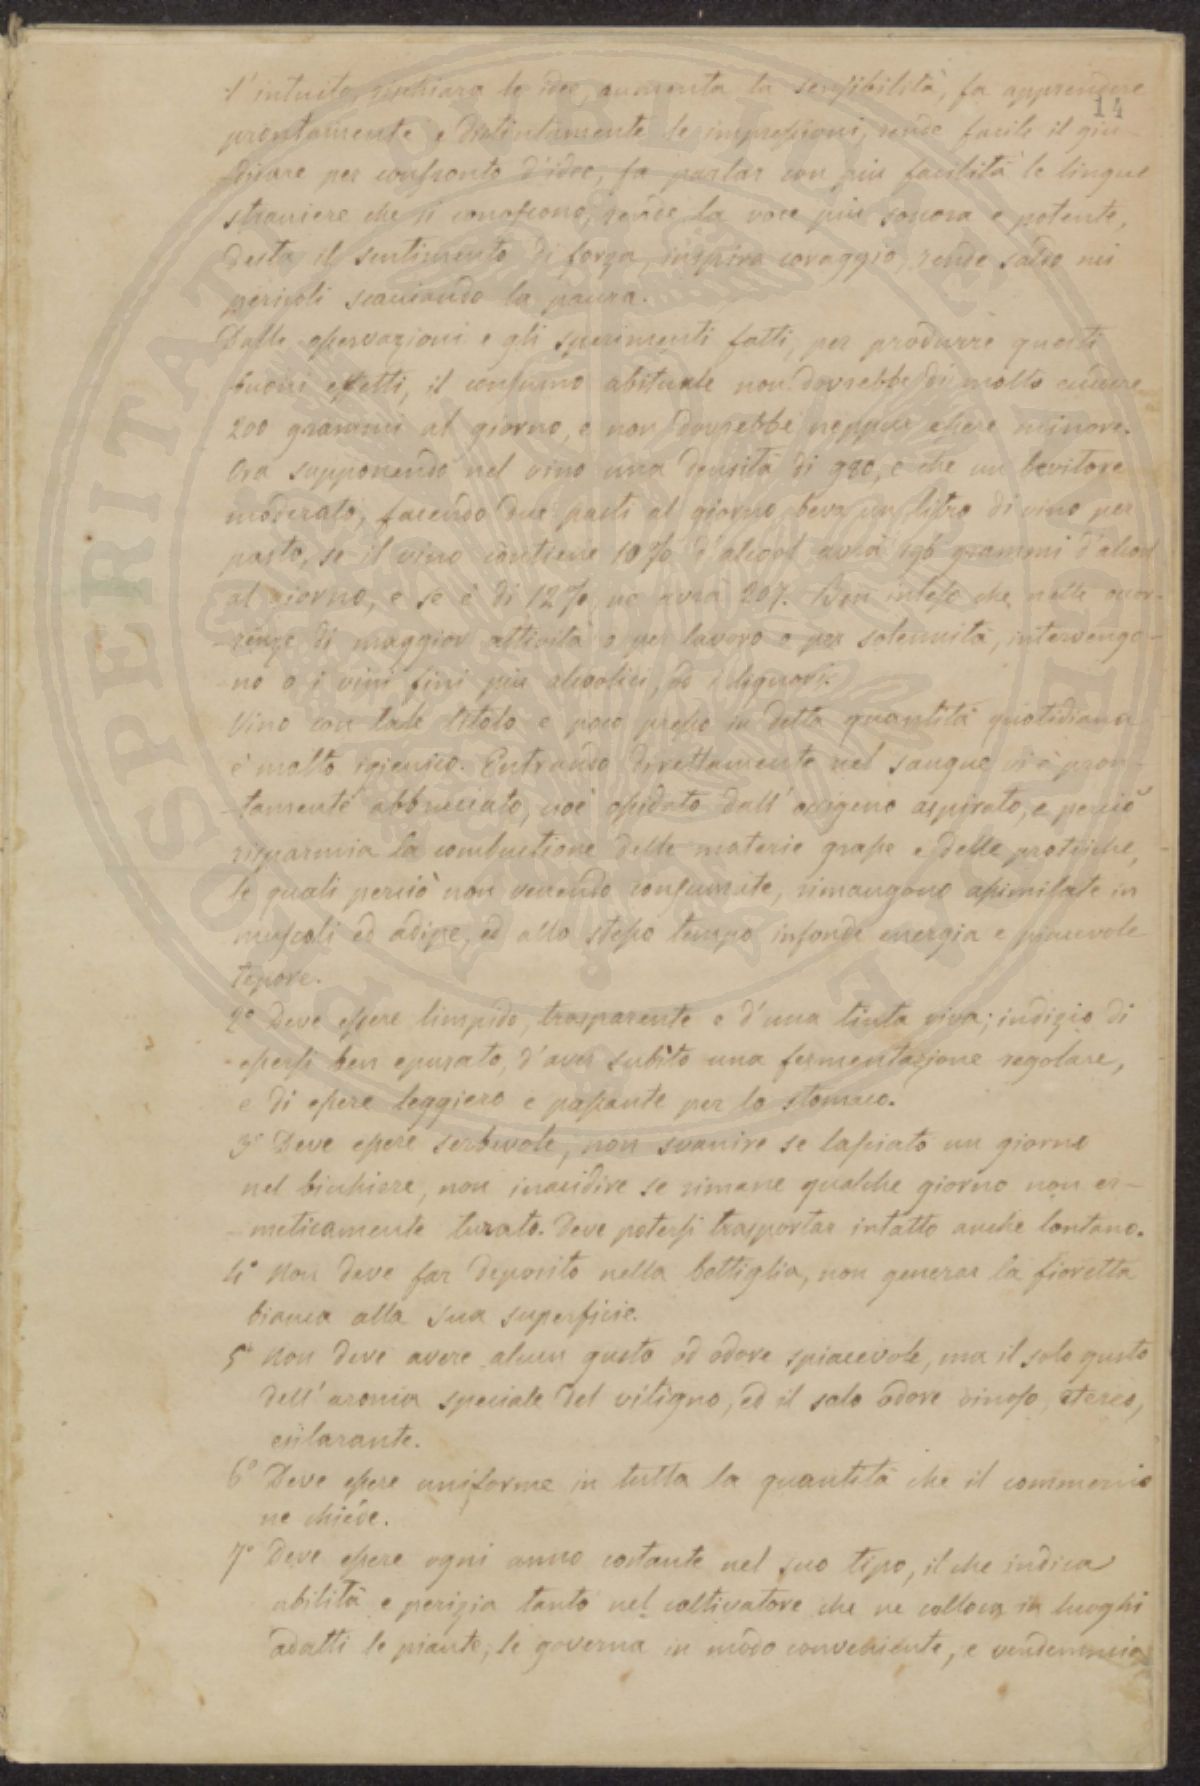 14
l'intuito, rischiara le idee, aumenta la sensibilità, fa apprendere
prontamente e distintamente le impressioni, rende facile il giu-
-dicare per confronto d'idee, fa parlar con più facilità le lingue
straniere che si conoscono, rende la voce più sonora e potente,
desta il sentimento di forza, inspira coraggio, rende saldo nei
pericoli scacciando la paura.
Dalle osservazioni e gli sperimenti fatti, per produrre questi
buoni effetti, il consumo abituale non dovrebbe di molto eccedere
200 grammi al giorno, e non dovrebbe neppur essere minore.
Ora supponendo nel vino una densità di 980, e che un bevitore
moderato, facendo due pasti al giorno, beva un litro di vino per
pasto, se il vino contiene 10 % d'alcool avrà 196 grammi d'alcool
al giorno, e se è di 12 %, ne avrà 207. Ben inteso che nelle occor-
-renze di maggior attività o per lavoro o per solennità, intervengo-
-no o i vini fini più alcoolici, od i liquori.
Vino con tale titolo e poco preso in detta quantità quotidiana
è molto igienico. Entrando direttamente nel sangue vi è pron-
-tamente abbruciato, cioè ossidato dall'ossigeno aspirato, e perciò
risparmia la combustione delle materie grasse e delle proteiche,
le quali perciò non venendo consumate, rimangono assimilate in
muscoli ed adipe, ed allo stesso tempo infonde energia e piacevole
tepore.
2° Deve essere limpido, trasparente e d'una tinta viva; indizio di
essersi ben epurato, d'aver subìto una fermentazione regolare,
e di essere leggiero e passante per lo stomaco.
3° Deve essere serbevole, non svanire se lasciato un giorno
nel bicchiere, non inacidire se rimane qualche giorno non er-
-meticamente turato. Deve potersi trasportar intatto anche lontano.
4° Non deve far deposito nella bottiglia, non generar la fioretta
bianca alla sua superficie.
5° Non deve avere alcun gusto od odore spiacevole, ma il solo gusto
dell'aroma speciale del vitigno, ed il solo odore vinoso, etereo,
esilarante.
6° Deve essere uniforme in tutta la quantità che il commercio
ne chiede.
7° Deve essere ogni anno costante nel suo tipo, il che indica
abilità e perizia tanto nel coltivatore che ne colloca in luoghi
adatti le piante, le governa in modo conveniente, e vendemmia
PROSPERITATI PUBLICAE AUGENDAE